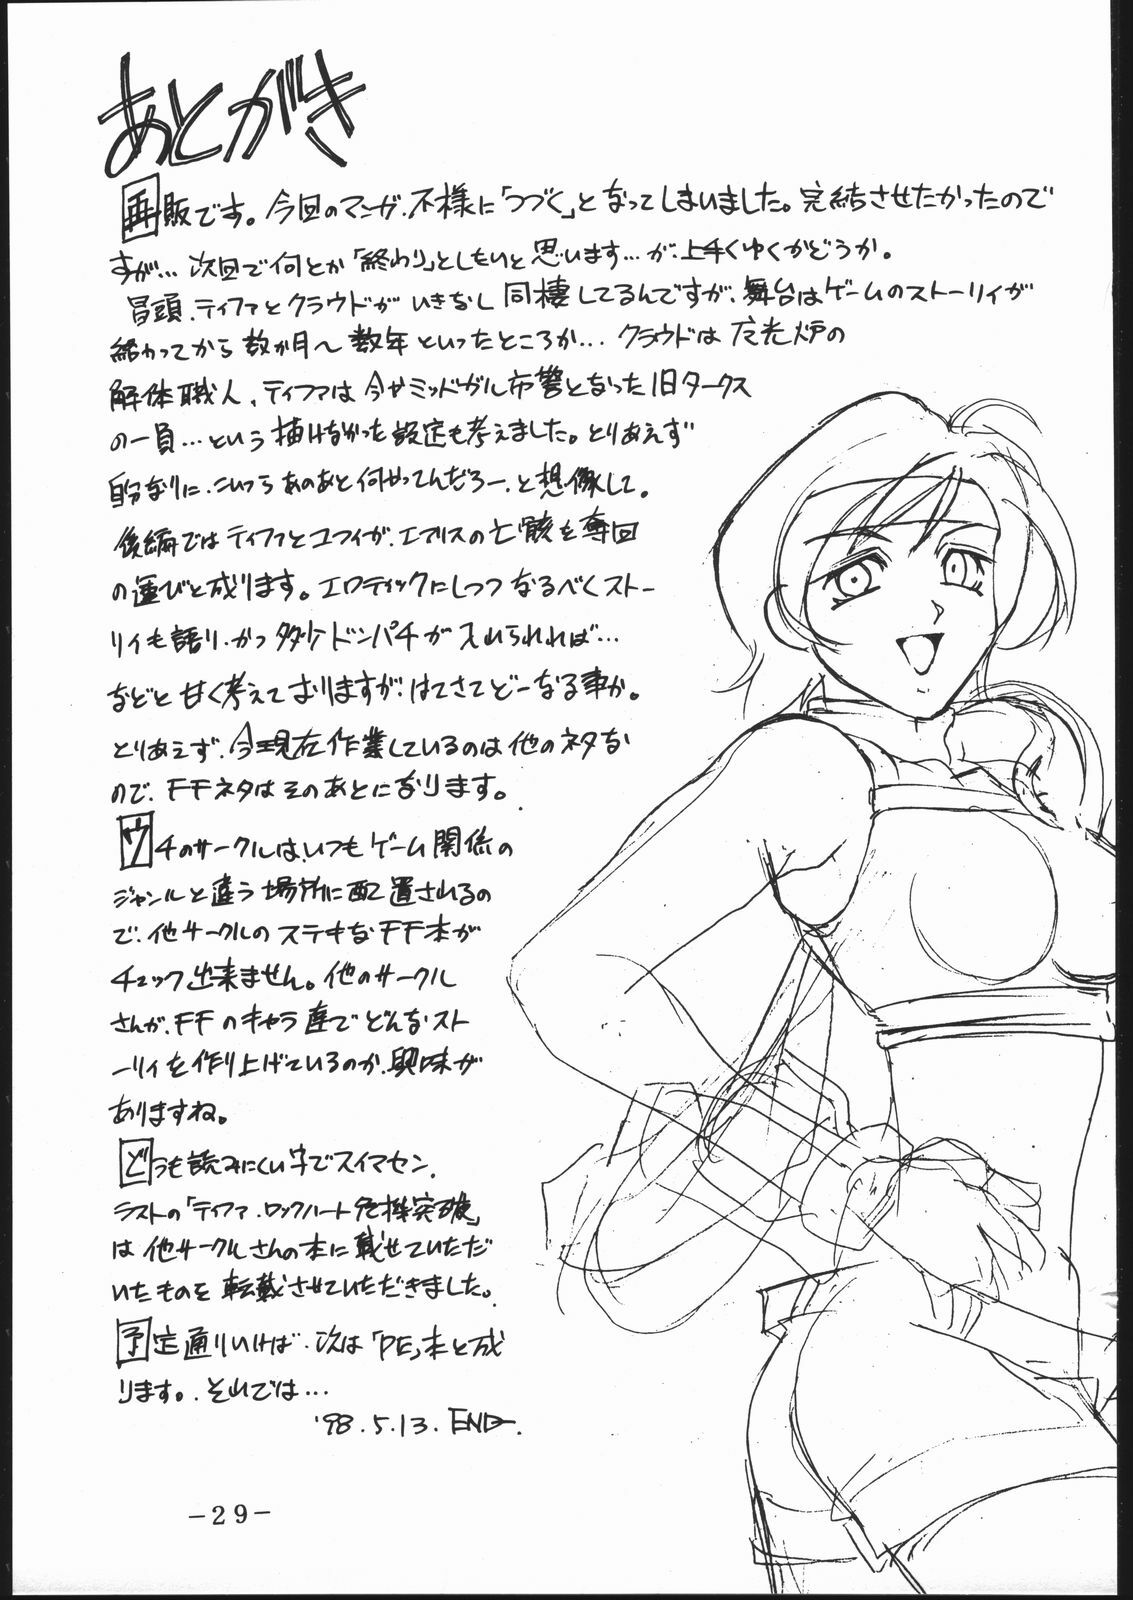 あとがき
再販です。今回のマンガ、不様に「つづく」となってしまいました。完結させたかったので
すが…次回で何とか「終わり」としたいと思います…が、上手くゆくかどうか。
冒頭、ティファとクラウドがいきなし同棲してるんですが、舞台はゲームのストーリィが
終わってから数か月～数年といったところか…クラウドは魔光炉の
解体職人、ティファは今やミッドガル市警となった旧タークス
の一員…という描けなかった設定も考えました。とりあえず
自分なりに、こいつらあのあと何やってんだろー、と想像して。
後編ではティファとユフィが、エアリスの亡骸を奪回
の運びと成ります。エロティックにしつつなるべくストー
リィも語り、かつ多少ドンパチが入れられれば…
などと甘く考えておりますが、はてさてどーなる事か。
とりあえず、今現在作業しているのは他のネタな
ので、FFネタはそのあとになります。
ウチのサークルは、いつもゲーム関係の
ジャンルと違う場所に配置されるの
で、他サークルのステキなFF本が
チェック出来ません。他のサークル
さんが、FFのキャラ達でどんなスト
ーリィを作り上げているのか、興味が
ありますね。
どうも読みにくい字でスイマセン。
ラストの「ティファ・ロックハート危機突破」
は他サークルさんの本に載せていただ
いたものを転載させていただきました。
予定通りいけば、次は「PE」本と成
ります。それでは…
'98.5.13. END
-29-